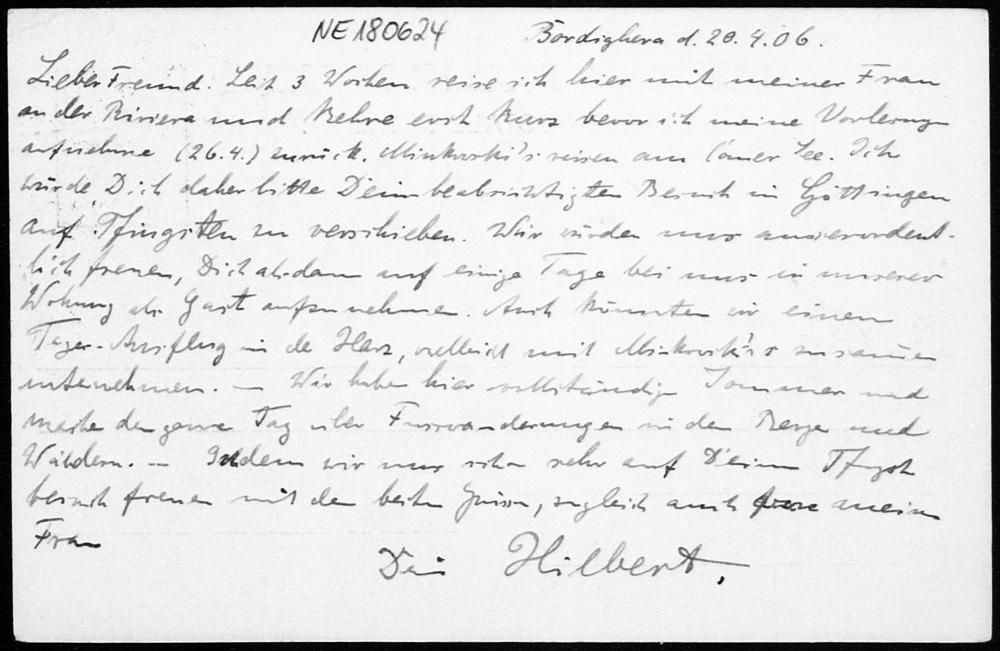 NE180624 Bordighera d. 20.4.06.
Lieber Freund. Seit 3 Wochen reise ich hier mit meiner Frau
an der Riviera und kehre erst kurz bevor ich meine Vorlesung
aufnehme (26.4.) zurück. Minkowski's reisen am Comer See. Ich
würde Dich daher bitte Deinen beabsichtigten Besuch in Göttingen
auf Pfingsten zu verschieben. Wir würden uns ausserordent-
lich freuen, Dich alsdann auf einige Tage bei uns in unserer
Wohnung als Gast aufzunehmen. Auch könnten wir einen
Tages-Ausflug in de Harz, vielleicht mit Minkowski's zusammen
unternehmen. — Wir haben hier vollständig Sommer und
machen den ganzen Tag über Fusswanderungen in den Bergen und
Wäldern. — Indem wir uns schon sehr auf Deinen Pfingst
besuch freuen mit den besten Grüssen, zugleich auch meiner
Frau
Dein Hilbert.